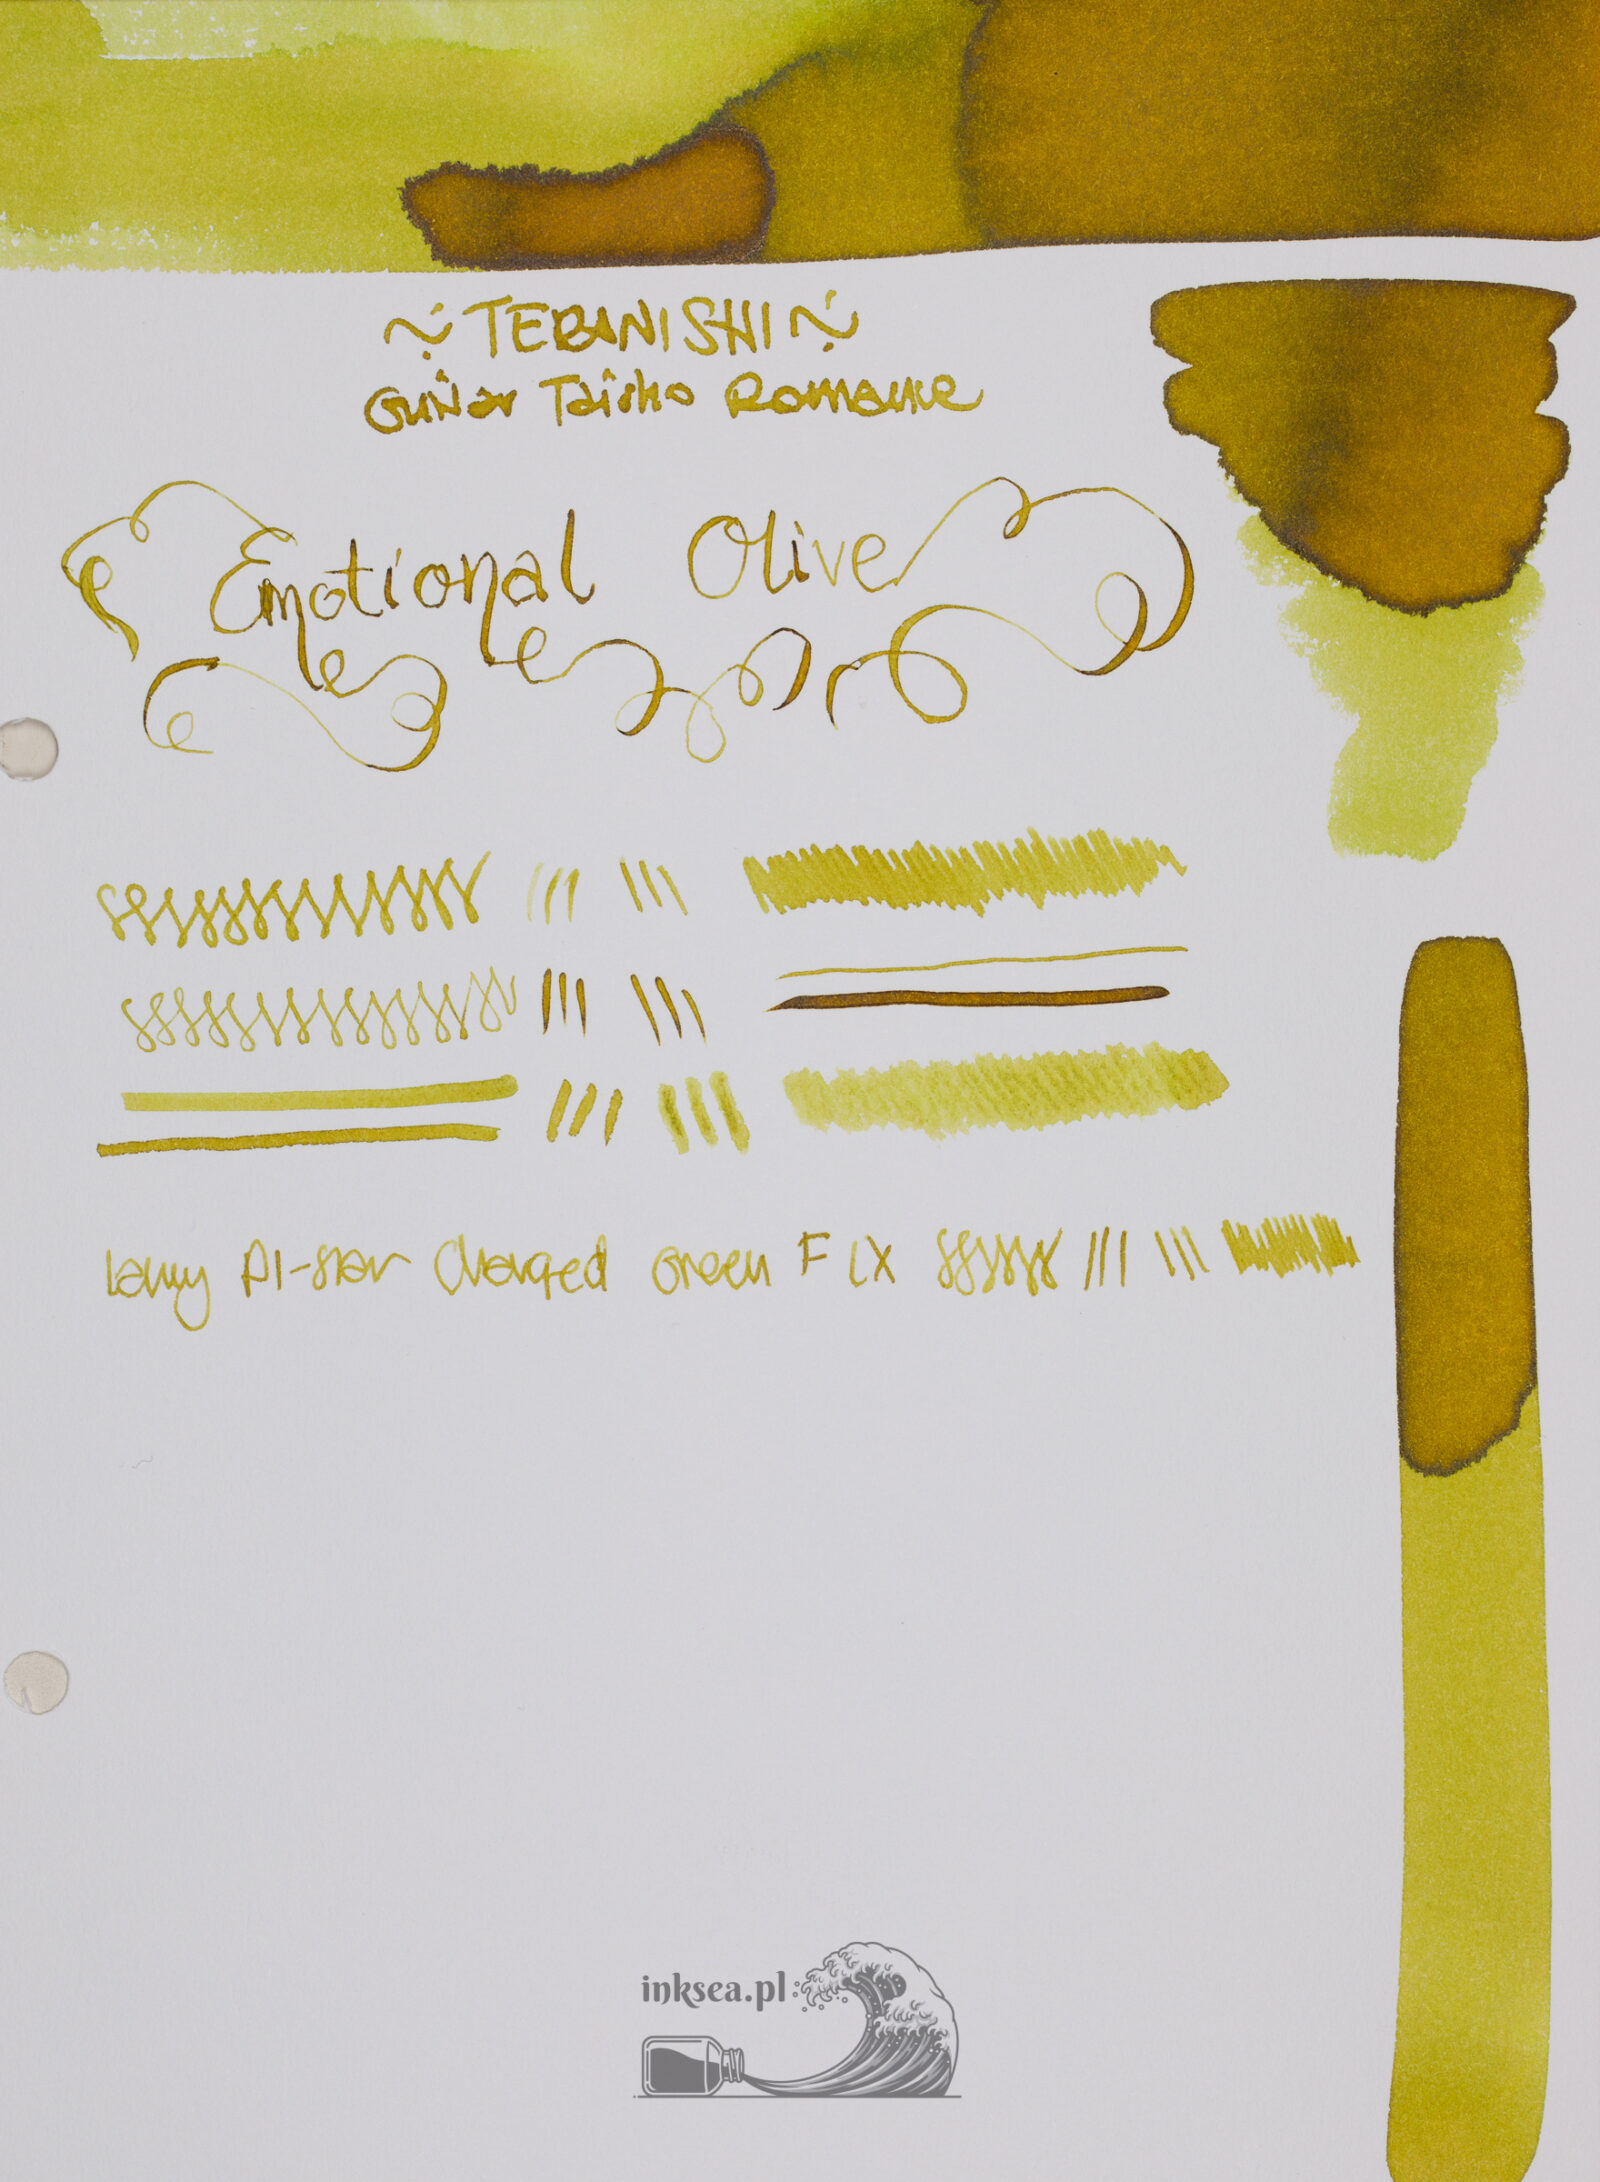 ~ TEBANISHI ~
Taisho Romance
Emotional Olive
Lamy Al-star Charged Green F LX
inksea.pl